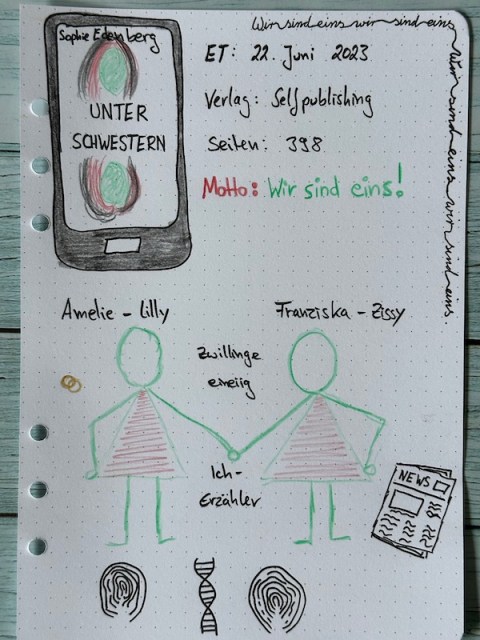 Wir sind eins wir sind eins
Wir sind eins wir sind eins.
Sophie Edenberg
UNTER
SCHWESTERN
ET: 22. Juni 2023
Verlag: Selfpublishing
Seiten: 398
Motto: Wir sind eins!
Amelie - Lilly
Franziska - Zissy
Zwillinge
eineiig
Ich-
Erzähler
NEWS